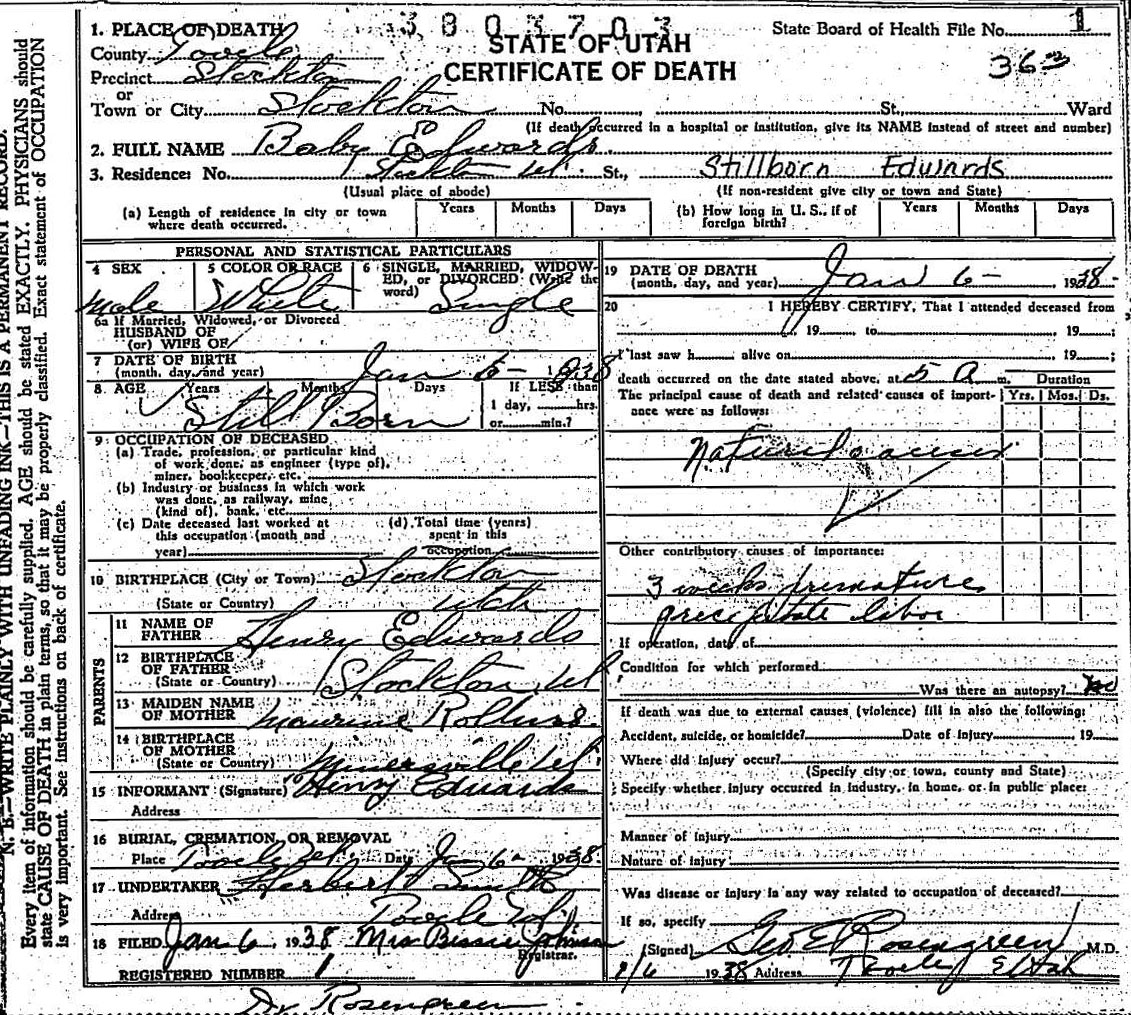 3803703
1. PLACE OF DEATH
STATE OF UTAH
CERTIFICATE OF DEATH
State Board of Health File No. 1
County Tooele
Precinct Stockton
or
Town or City Stockton No. St., Ward
(If death occurred in a hospital or institution, give its NAME instead of street and number)
2. FULL NAME Baby Edwards
3. Residence: No. Stockton Ut. St., Stillborn Edwards
(Usual place of abode) (If non-resident give city or town and State)
(a) Length of residence in city or town where death occurred. Years Months Days (b) How long in U. S., if of foreign birth? Years Months Days
PERSONAL AND STATISTICAL PARTICULARS
4 SEX male
5 COLOR OR RACE White
6 SINGLE, MARRIED, WIDOWED, or DIVORCED: (Write the word) Single
6a If Married, Widowed, or Divorced
HUSBAND OF
(or) WIFE OF
7 DATE OF BIRTH
(month, day, and year) Jan 6- 1938
8 AGE Years Months Days If LESS than
1 day, hrs.
or min.?
Still Born
9 OCCUPATION OF DECEASED
(a) Trade, profession, or particular kind
of work done, as engineer (type of),
miner, bookkeeper, etc.
(b) Industry or business in which work
was done, as railway, mine
(kind of), bank, etc.
(c) Date deceased last worked at
this occupation (month and
year)
(d) Total time (years)
spent in this
occupation
10 BIRTHPLACE (City or Town) Stockton
(State or Country) Utah
PARENTS
11 NAME OF
FATHER Henry Edwards
12 BIRTHPLACE
OF FATHER
(State or Country) Stockton Ut
13 MAIDEN NAME
OF MOTHER Maurine Rollins
14 BIRTHPLACE
OF MOTHER
(State or Country) Minersville Ut.
15 INFORMANT (Signature) Henry Edwards
Address
16 BURIAL, CREMATION, OR REMOVAL
Place Tooele Date Jan 6- 1938
17 UNDERTAKER Herbert Smith
Address Tooele
18 FILED Jan 6 1938 Mrs Bessie Johnson
Registrar.
REGISTERED NUMBER 1
Dr Rosengreen
19 DATE OF DEATH
(month, day, and year) Jan 6- 1938
20 I HEREBY CERTIFY, That I attended deceased from
19 to 19 ;
I last saw h alive on 19 ;
death occurred on the date stated above, at 5 A m. Duration
The principal cause of death and related causes of importance were as follows: Yrs. Mos. Ds.
Natural causes
Other contributory causes of importance:
3 weeks premature
precipitate labor
If operation, date of
Condition for which performed
Was there an autopsy? no
If death was due to external causes (violence) fill in also the following:
Accident, suicide, or homicide? Date of injury 19
Where did injury occur?
(Specify city or town, county and State)
Specify whether injury occurred in industry, in home, or in public place:
Manner of injury
Nature of injury
Was disease or injury in any way related to occupation of deceased?
If so, specify
(Signed) Geo E Rosengreen M.D.
1938 Address Tooele Utah
N. B.—WRITE PLAINLY WITH UNFADING INK—THIS IS A PERMANENT RECORD.
Every item of information should be carefully supplied. AGE should be stated EXACTLY. PHYSICIANS should
state CAUSE OF DEATH in plain terms, so that it may be properly classified. Exact statement of OCCUPATION
is very important. See instructions on back of certificate.